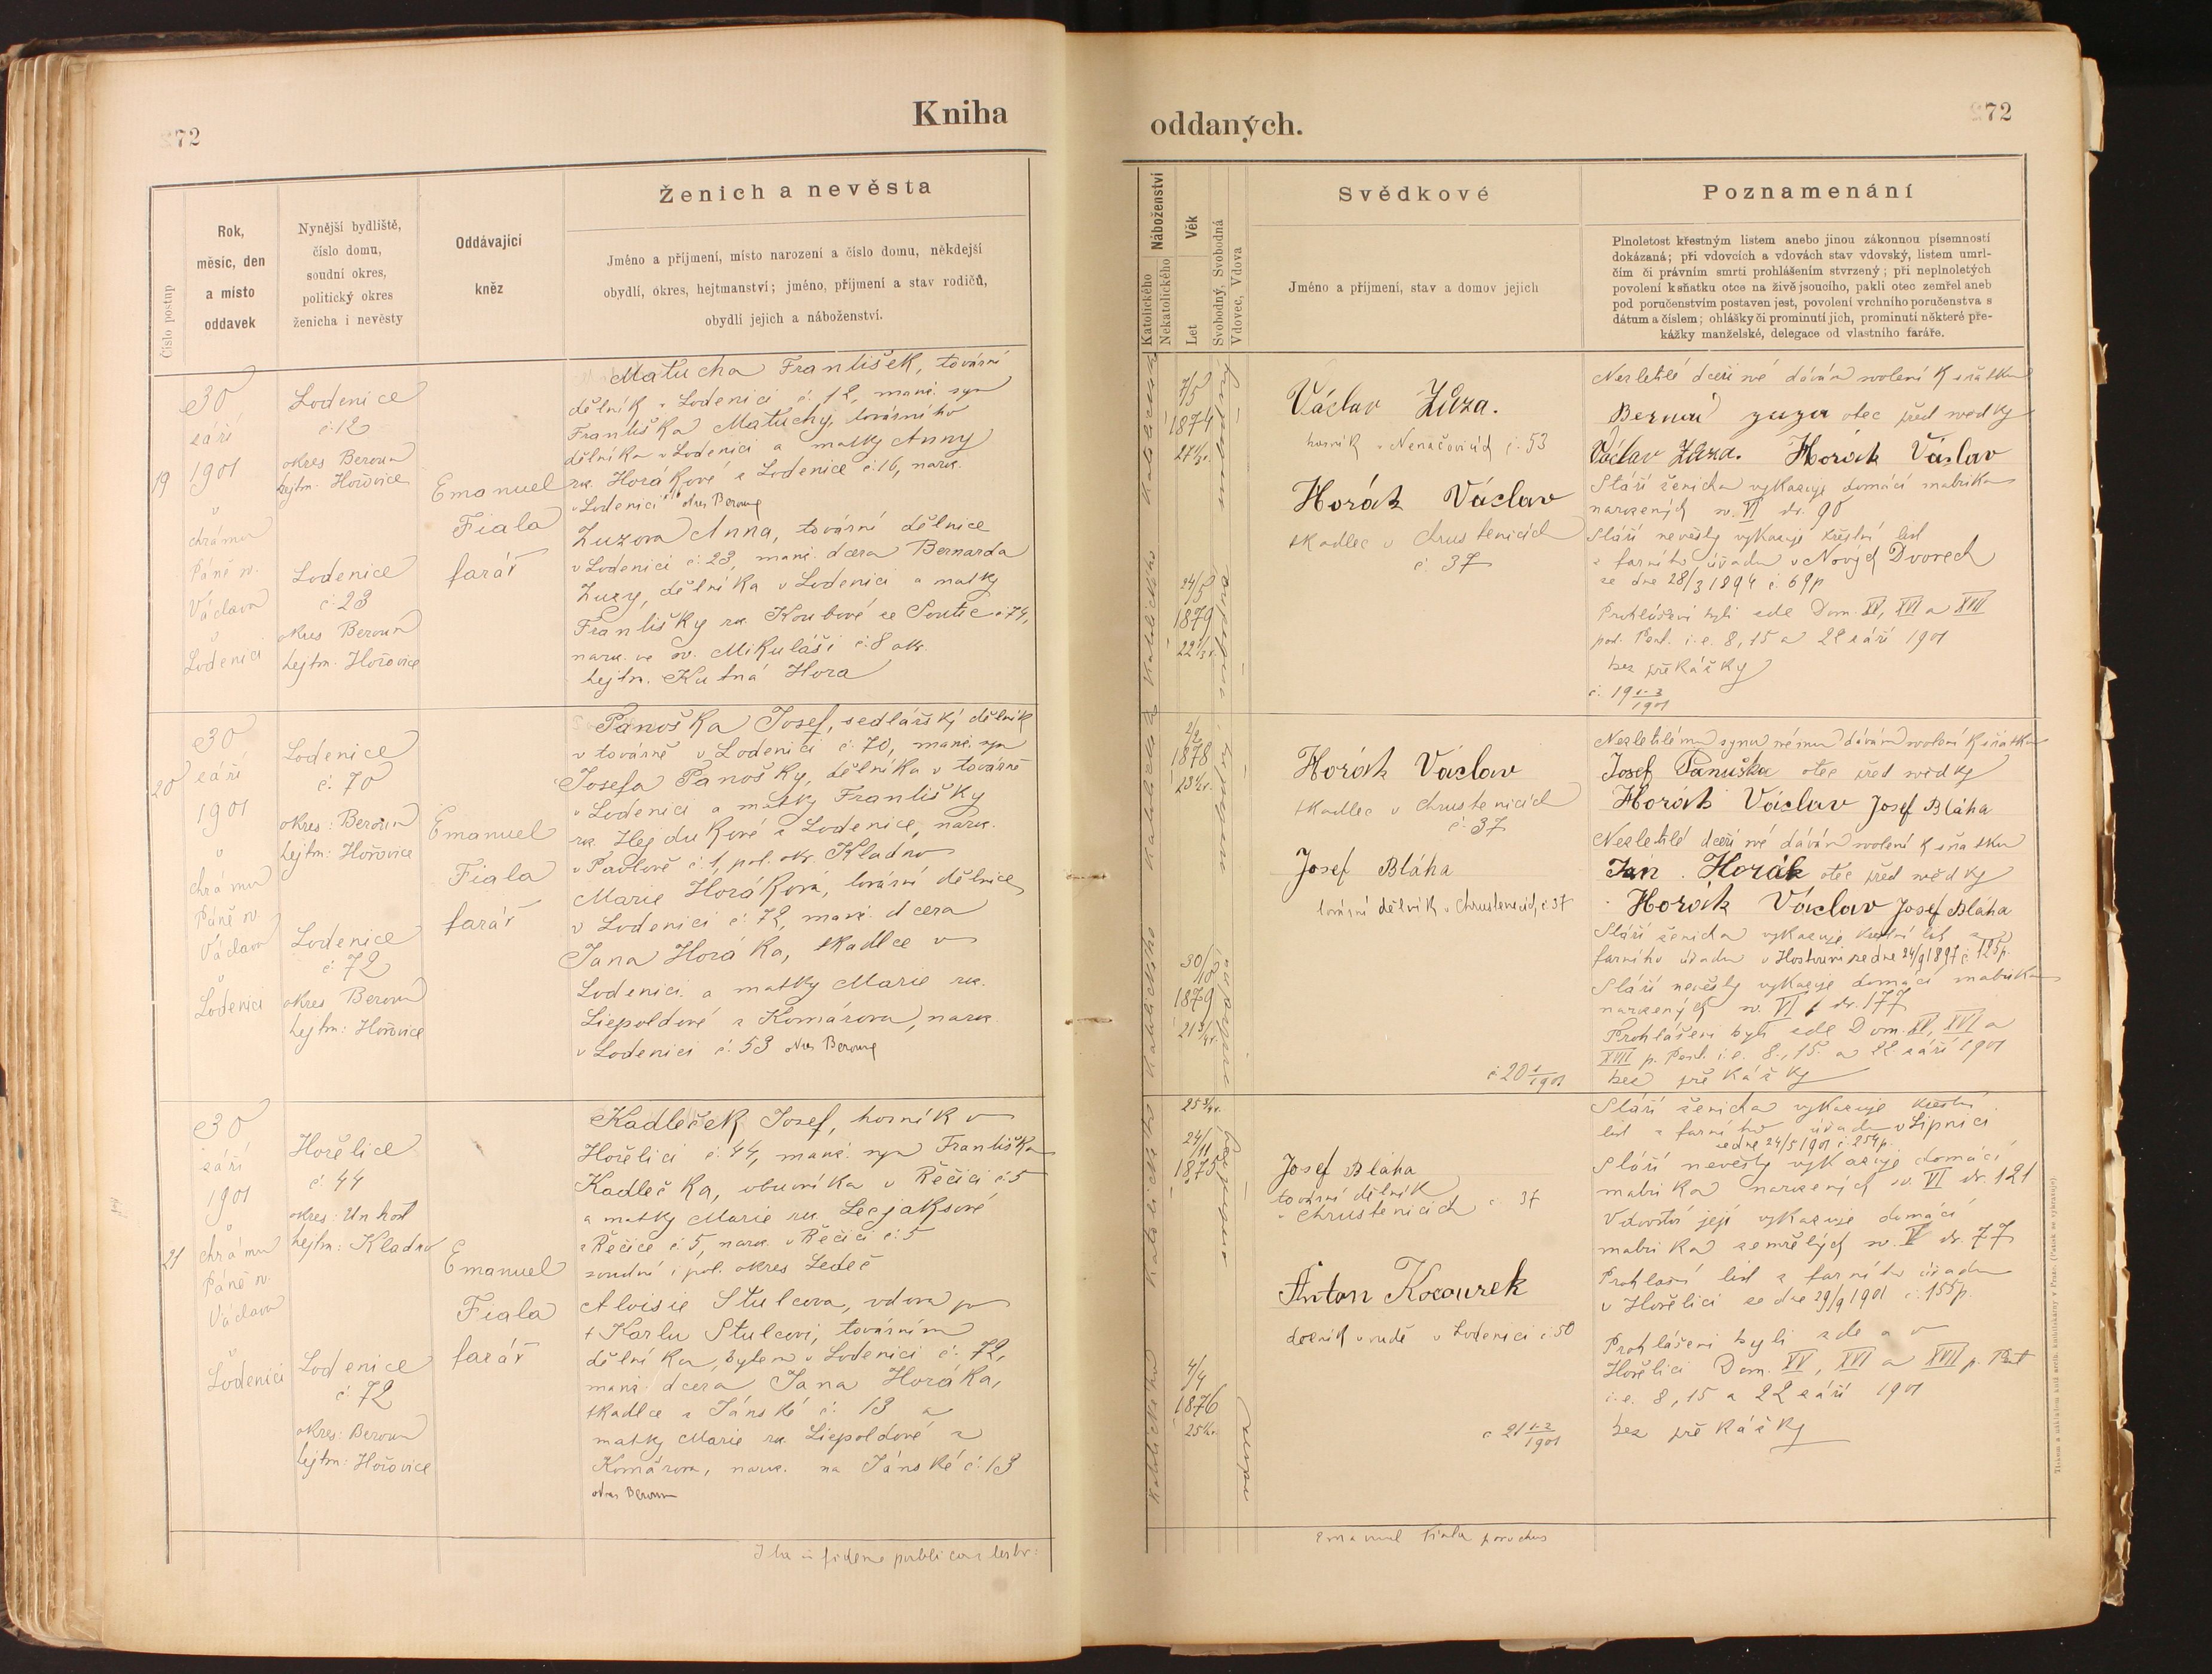 272
Kniha
Číslo postup
Rok,
měsíc, den
a místo
oddavek
Nynější bydliště,
číslo domu,
soudní okres,
politický okres
ženicha i nevěsty
Oddávající
kněz
Ženich a nevěsta
Jméno a příjmení, místo narození a číslo domu, někdejší
obydlí, okres, hejtmanství; jméno, příjmení a stav rodičů,
obydlí jejich a náboženství.
19
30
září
1901
v
chrámu
Páně sv.
Václava
v
Loděnici
Loděnice
č. 12
okres Beroun
hejtm. Hořovice
Loděnice
č. 23
okres Beroun
hejtm. Hořovice
Emanuel
Fiala
farář
Matucha František, tovární
dělník v Loděnici č. 12, manž. syn
Františka Matuchy, továrního
dělníka v Loděnici a matky Anny
roz. Horákové z Loděnice č. 16, naroz.
v Loděnici okres Beroun
Zuzova Anna, tovární dělnice
v Loděnici č. 23, manž. dcera Bernarda
Zuzy, dělníka v Loděnici a matky
Františky roz. Koubové ze Soutic č. 74,
naroz. ve sv. Mikuláši č. 8 okr.
hejtm. Kutná Hora
20
30
září
1901
v
chrámu
Páně sv.
Václava
v
Loděnici
Loděnice
č. 70
okres: Beroun
hejtm: Hořovice
Loděnice
č. 72
okres Beroun
hejtm: Hořovice
Emanuel
Fiala
farář
Panoška Josef, sedlářský dělník
v továrně v Loděnici č. 70, manž. syn
Josefa Panošky, dělníka v továrně
v Loděnici a matky Františky
roz. Hejdukové z Loděnice, naroz.
v Pavlově č. 1, pol. okr. Kladno
Marie Horáková, tovární dělnice
v Loděnici č. 72, manž. dcera
Jana Horáka, tkadlce v
Loděnici a matky Marie roz.
Liepoldové z Komárova, naroz.
v Loděnici č. 53 okres Beroun
21
30
září
1901
v
chrámu
Páně sv.
Václava
v
Loděnici
Hořelice
č. 44
okres: Unhošť
hejtm: Kladno
Loděnice
č. 72
okres: Beroun
hejtm: Hořovice
Emanuel
Fiala
farář
Kadleček Josef, horník v
Hořelici č. 44, manž. syn Františka
Kadlečka, obuvníka v Řečici č. 5
a matky Marie roz.
z Řečice č. 5, naroz. v Řečici č. 5
soudní i pol. okres Ledeč
Aloisie Stulcova, vdova po
† Karlu Stulcovi, továrním
dělníku, bytem v Loděnici č. 72,
manž. dcera Jana Horáka,
tkadlce z Jánské č. 13 a
matky Marie roz. Liepoldové z
Komárova, naroz. na Jánské č. 13
okres Beroun
Ita in fidem publicam testor:
oddaných.
272
Náboženství
Katolického
Nekatolického
Věk
Let
Svobodný, Svobodná
Vdovec, Vdova
Svědkové
Jméno a příjmení, stav a domov jejich
Poznamenání
Plnoletost křestným listem anebo jinou zákonnou písemností
dokázaná; při vdovcích a vdovách stav vdovský, listem umrl-
čím či právním smrti prohlášením stvrzený; při neplnoletých
povolení k sňatku otce na živě jsoucího, pakli otec zemřel aneb
pod poručenstvím postaven jest, povolení vrchního poručenstva s
dátum a číslem; ohlášky či prominutí jich, prominutí některé pře-
kážky manželské, delegace od vlastního faráře.
Katolického
7/5
1874
24/5
1879
22 1/3 r.
Václav Zůza.
horník v Nenačovicích č. 53
Horák Václav
tkadlec v Chrustenicích
č. 37
Nezletilé dceři mé dávám svolení k sňatku
Bernard zuza otec před svědky
Václav Zůza. Horák Václav
Stáří ženicha vykazuje domácí matrika
narozených sv. VI str. 90
Stáří nevěsty vykazuje křestní list
z farního úřadu v Nových Dvorech
ze dne 28/3 1894 č. 69p
Prohlášeni byli zde Dom. XV, XVI a XVII
post. Pent. i.e. 8, 15 a 22 září 1901
bez překážky
č. 19 1-3/1901
Katolického
2/2
1878
30/10
1879
21 3/4 r.
Horák Václav
tkadlec v Chrustenicích
č. 37
Josef Bláha
tovární dělník v Chrustenicích č. 37
č. 20 1/1901
Nezletilému synu mému dávám svolení k sňatku
Josef Panuška otec před svědky
Horák Václav Josef Bláha
Nezletilé dceři mé dávám svolení k sňatku
Jan Horák otec před svědky
Horák Václav Josef Bláha
Stáří ženicha vykazuje křestní list z
farního úřadu v Hostouni ze dne 24/9 1897 č. 125p.
Stáří nevěsty vykazuje domácí matrika
narozených sv. VI str. 177
Prohlášeni byli zde Dom. XV, XVI a
XVII p. Pent. i.e. 8., 15. a 22 září 1901
bez překážky
Katolického
25 3/4 r.
24/11
1875
4/4
1876
25 1/2 r.
Josef Bláha
tovární dělník
v Chrustenicích č. 37
Anton Kocourek
v Loděnici č. 50
č. 21 1-2/1901
Stáří ženicha vykazuje křestní
list z farního úřadu v Lipnici
ze dne 24/5 1901 č. 254p.
Stáří nevěsty vykazuje domácí
matrika narozených sv. VI str. 121
Vdovství její vykazuje domácí
matrika zemřelých sv. V str. 77
Prohlašní list z farního úřadu
v Hořelici ze dne 29/9 1901 č. 155p.
Prohlášeni byli zde a v
Hořelici Dom. XV, XVI a XVII p. Pent
i.e. 8, 15 a 22 září 1901
bez překážky
Emanuel Fiala parochus